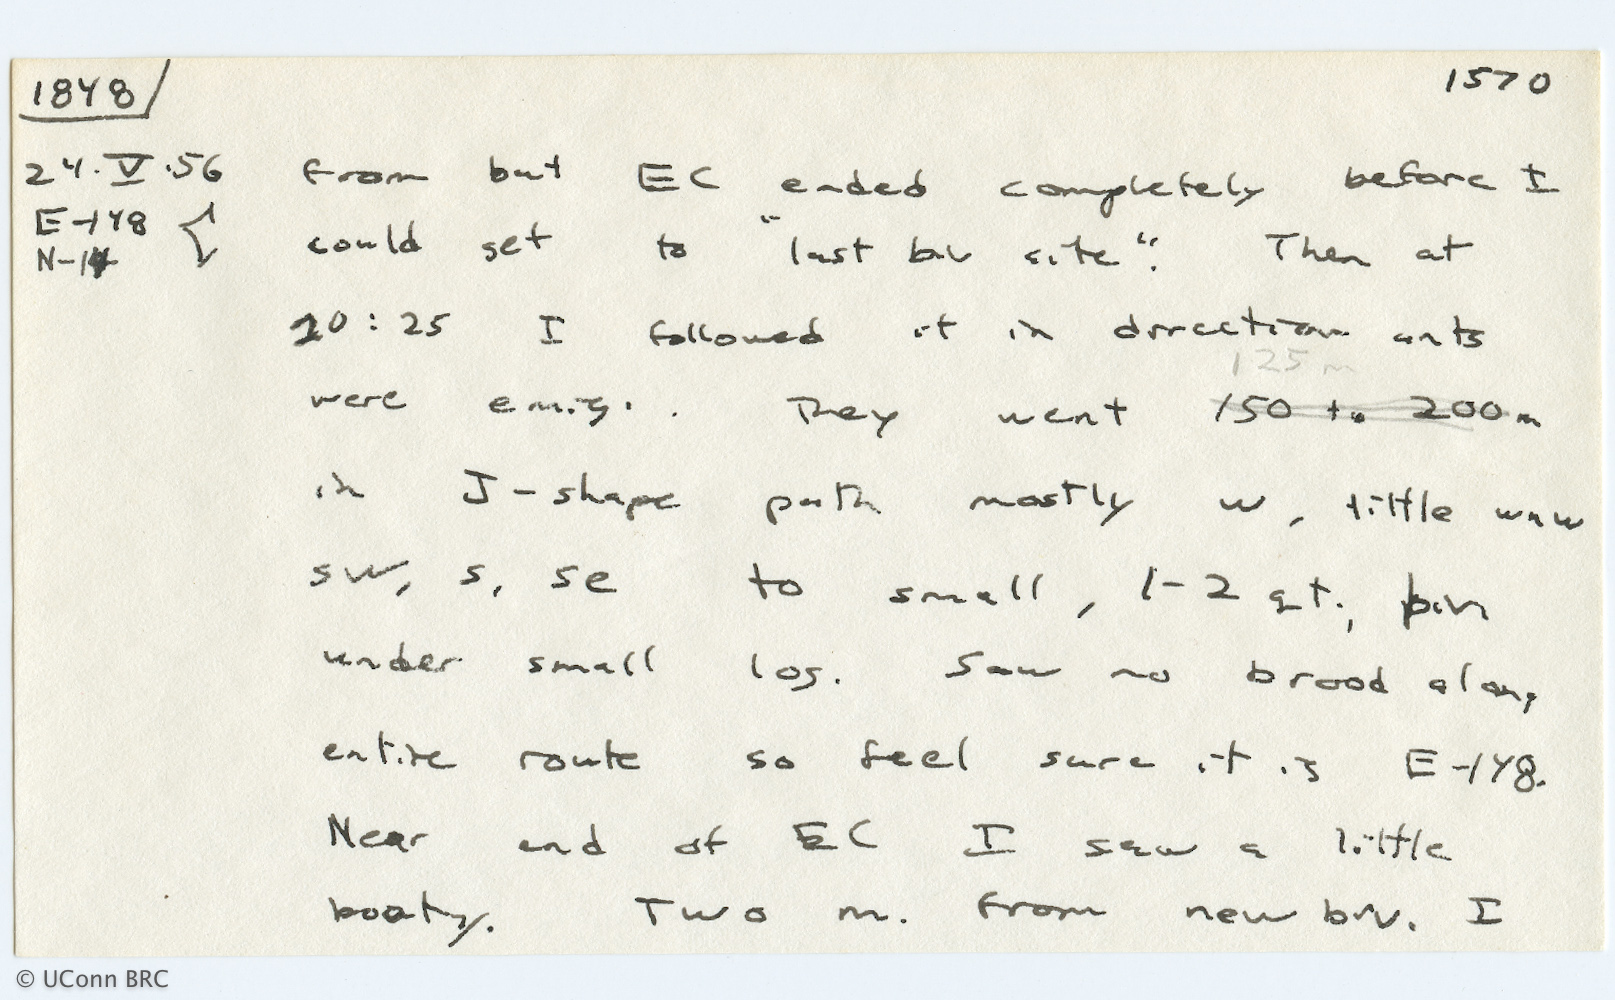 1848 1570
24.V.56 from but EC ended completely before I
E-148 could get to "last biv site". Then at
N-14
20:25 I followed it in direction ants
125 m
were emig.. They went 150 to 200 m
in J-shape path mostly w, little wnw
sw, s, se to small, 1-2 qt., biv
under small log. Saw no brood along
entire route so feel sure it is E-148.
Near end of EC I saw a little
booty. Two m. from new biv. I
© UConn BRC